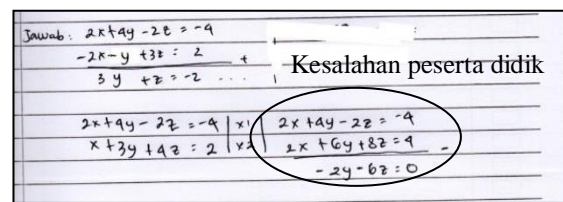 Jawab: 2x+4y-2z = -4
-2x-y+3z = 2 +
3y +z = -2 ...
Kesalahan peserta didik
2x+4y-2z = -4 | x1 | 2x+4y-2z = -4
x+3y+4z = 2 | x2 | 2x+6y+8z = 4 -
-2y-6z = 0